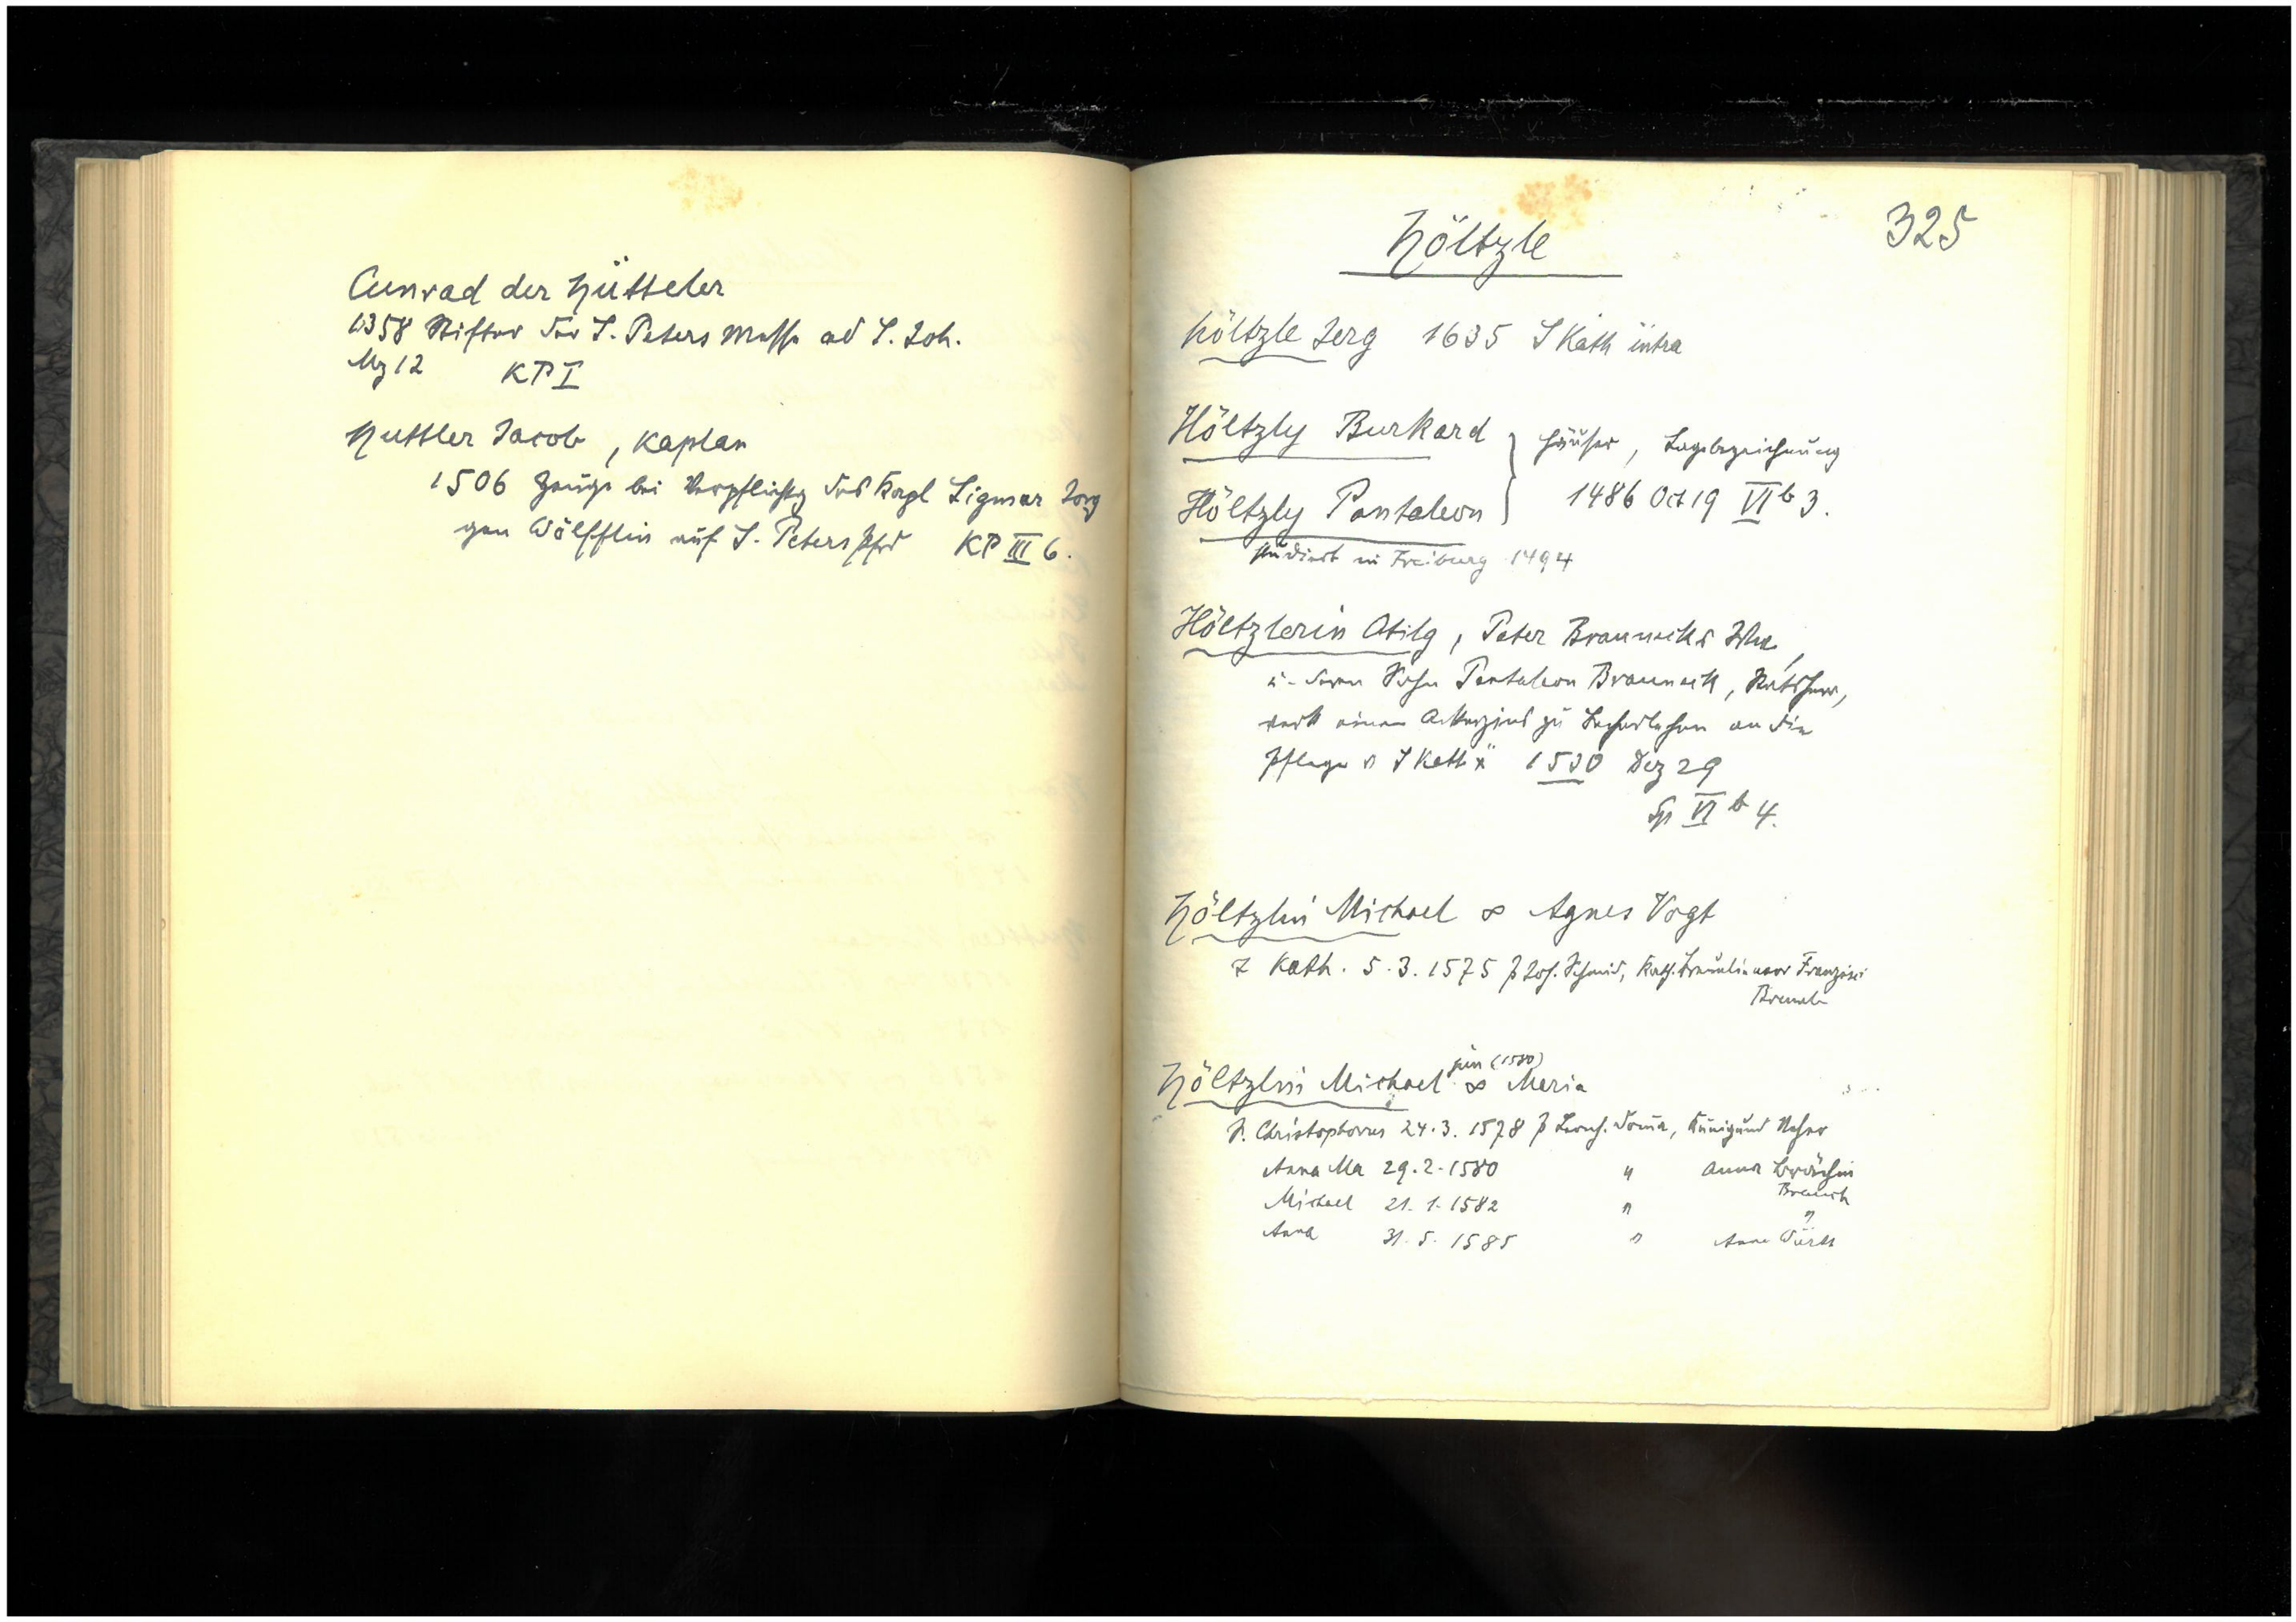 Cunrad der Hütteler
1358 Stifter der S. Peters Messe ad S. Joh.
Mz 12 KP I
Huttler Jacob, Kaplan
1506 Zeuge bei Verpflichtg des Kapl Sigmar Jörg
gen Wölfflin auf S. Peters Pfrd KP III 6.
325
Höltzle
Höltzle Jerg 1635 S Kath intra
Höltzly Burkard } Häuser, Lagebezeichnung
Höltzly Pantaleon } 1486 Oct 19 VI b 3.
studiert in Freiburg 1494
Höltzlerin Otilg, Peter Braunecks Wwe,
u. deren Sohn Pantaleon Brauneck, Ratsherr,
verk einen Ackerzins zu an die
Pflege v S Kath 1530 Dez 29
Sp VI b 4.
Höltzlin Michael ∞ Agnes Vogt
T Kath. 5.3.1575 P Joh. Schmid, Kath. uxor Francisci
Höltzlin Michael jun (1580) ∞ Maria
S. Christophorus 24.3.1578 P Künigund
Anna Ma 29.2.1580 " Anna
Michael 21.1.1582 " "
Anna 31.5.1585 " Anna